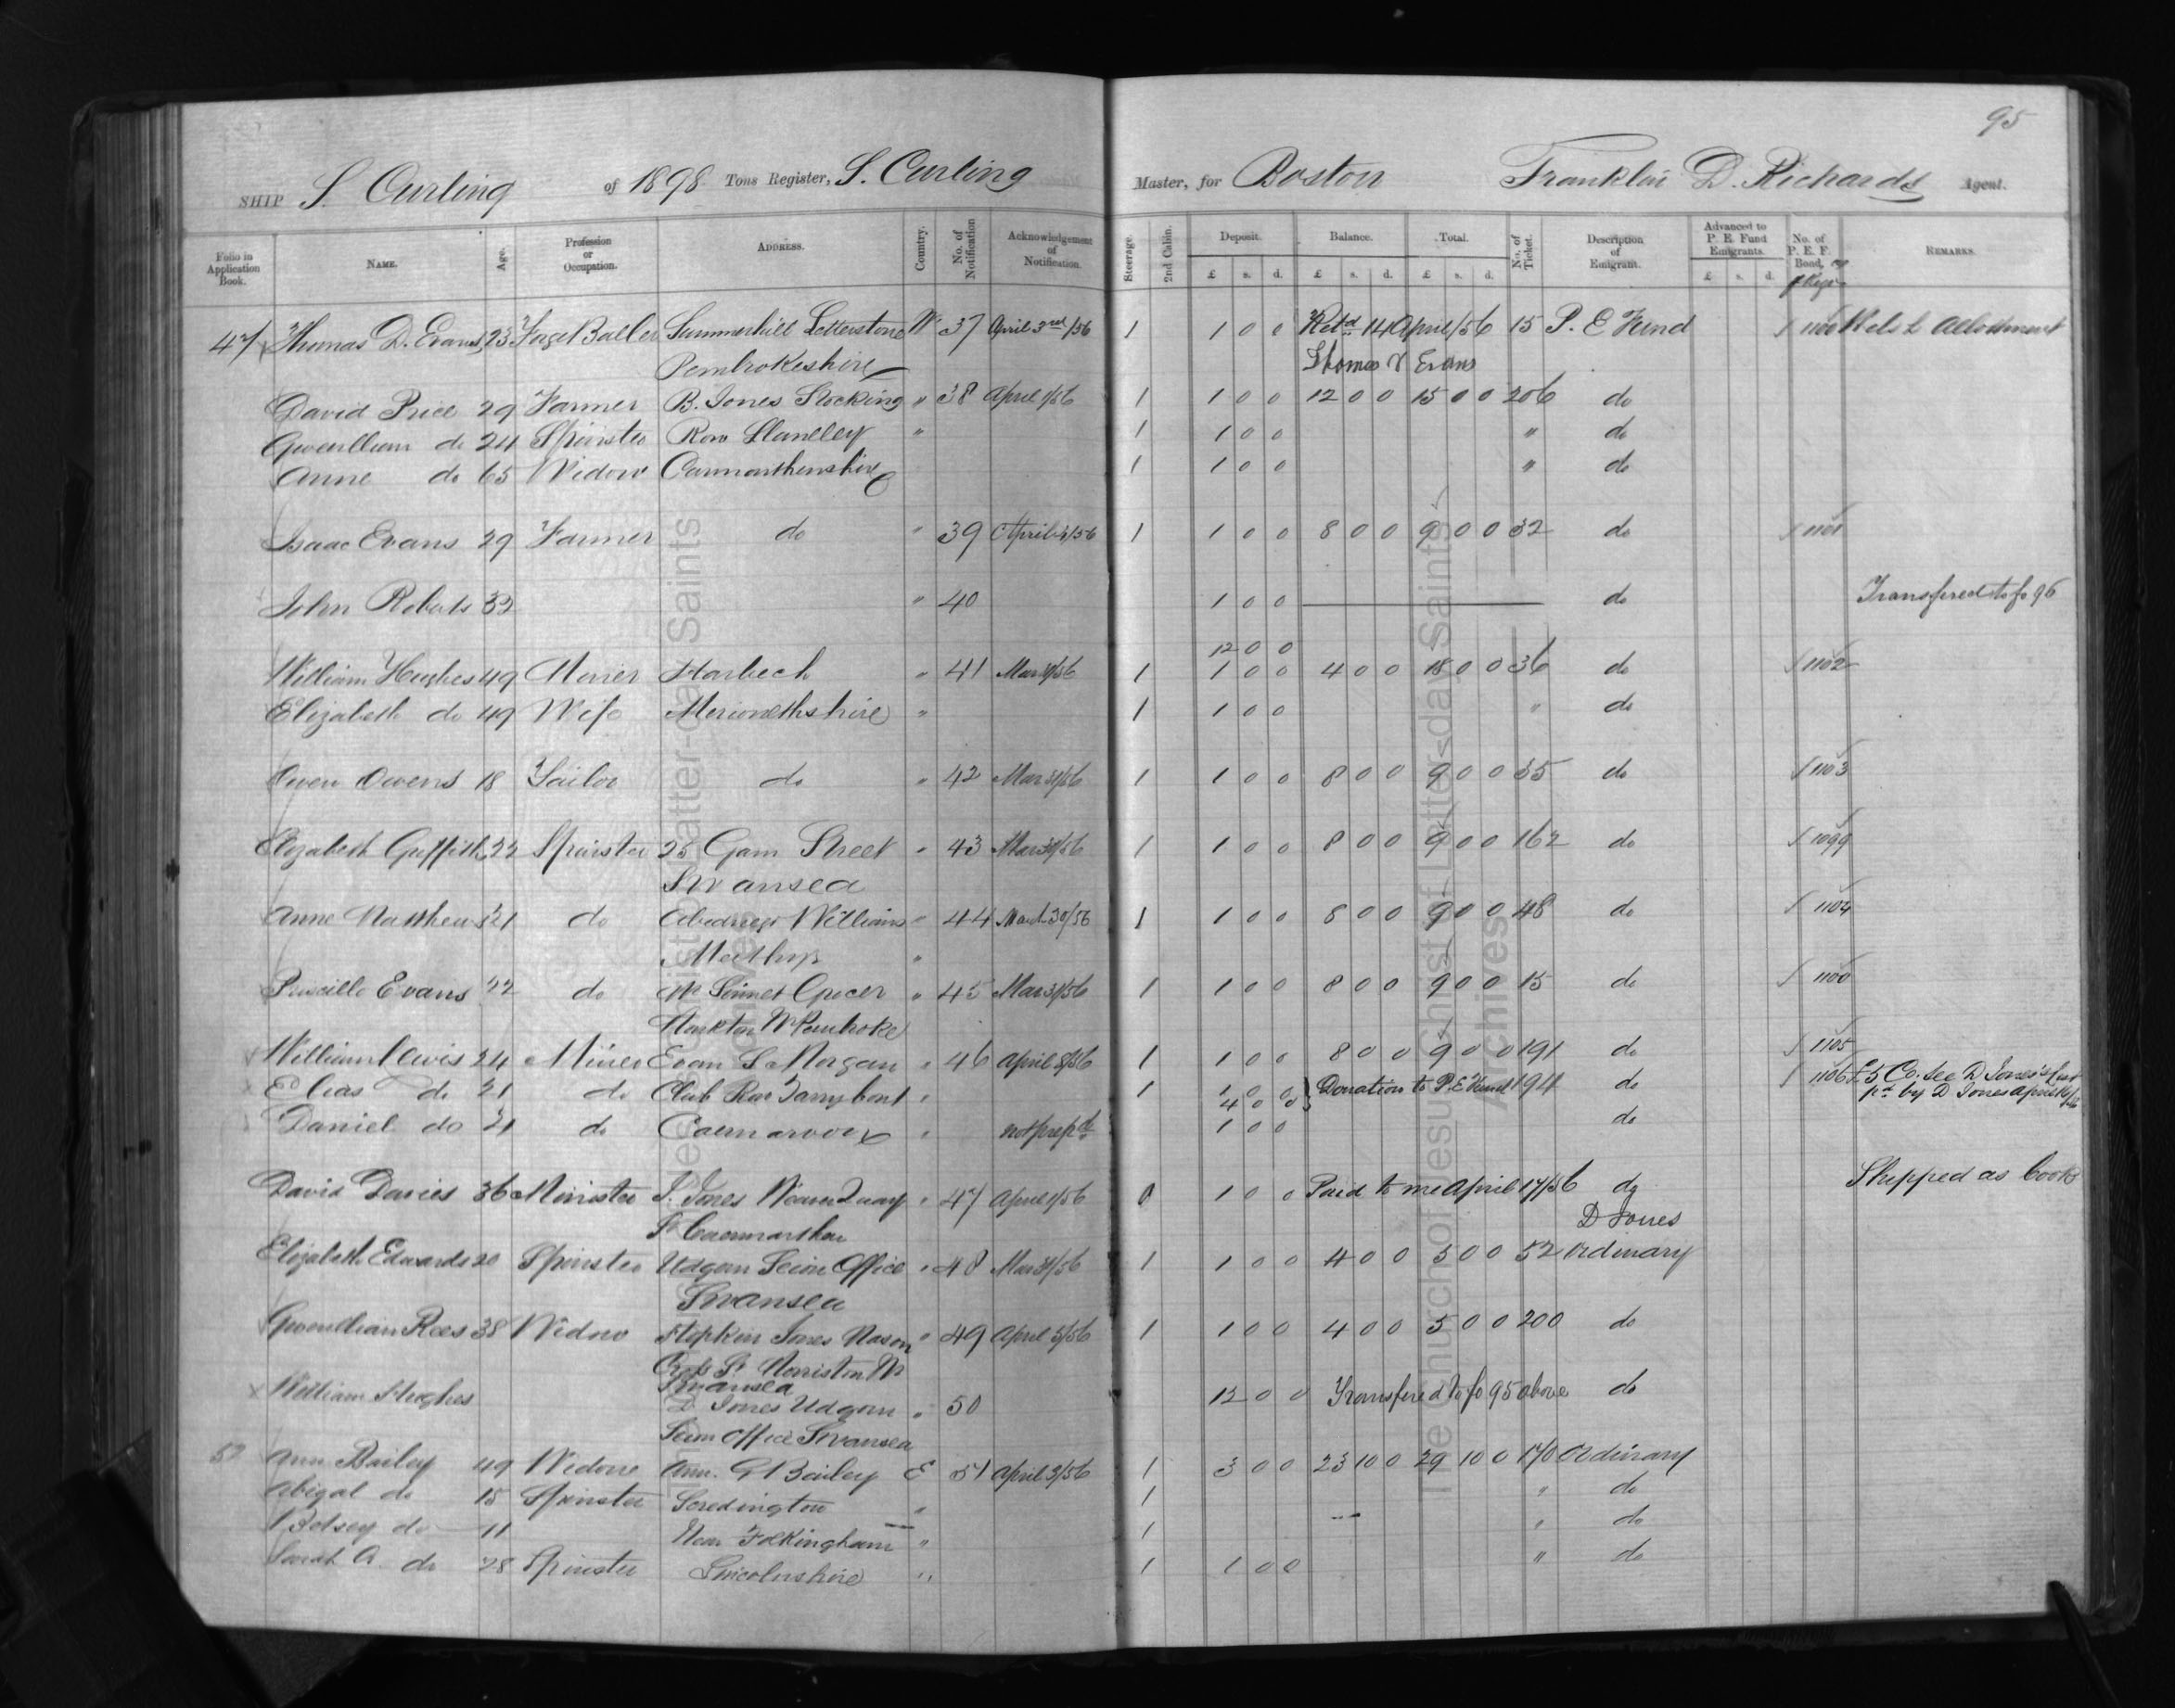 95
SHIP S. Curling of 1898 Tons Register, S. Curling Master, for Boston Franklin D. Richards Agent.
Folio in Application Book. NAME. Age. Profession or Occupation. ADDRESS. Country. No. of Notification Acknowledgement of Notification. Steerage. 2nd Cabin. Deposit. £ s. d. Balance. £ s. d. Total. £ s. d. No. of Ticket. Description of Emigrant. Advanced to P. E. Fund Emigrants. £ s. d. No. of P. E. F. Bond, REMARKS.
47 Thomas D. Evans 23 Summerhill Letterstone W 37 April 3rd/56 1 1 0 0 Retd 14 April/56 15 P. E Fund 1100 Welsh Allotment
Pembrokeshire Thomas D Evans
David Price 29 Farmer B. Jones Stocking " 38 April 1/56 1 1 0 0 12 0 0 15 0 0 206 do
Gwenllian do 24 Spinster Row Llanelley " 1 1 0 0 " do
Anne do 65 Widow Carmarthenshire 1 1 0 0 " do
Isaac Evans 29 Farmer do " 39 April 3/56 1 1 0 0 8 0 0 9 0 0 32 do 1101
John Roberts 33 " 40 1 0 0 do Transfered to fo 96
12 0 0
William Hughes 49 Harlech " 41 Mar 31/56 1 1 0 0 4 0 0 18 0 0 36 do 1102
Elizabeth do 49 Wife Merionethshire " 1 1 0 0 " do
Owen Owens 18 Sailor do " 42 Mar 31/56 1 1 0 0 8 0 0 9 0 0 35 do 1103
Elizabeth Griffith 22 Spinster 25 Gam Street " 43 Mar 31/56 1 1 0 0 8 0 0 9 0 0 162 do 1099
Swansea
Anne Matthews 21 do Abednego Williams " 44 March 30/56 1 1 0 0 8 0 0 9 0 0 48 do 1104
Merthyr "
Priscilla Evans 22 do Grocer " 45 Mar 31/56 1 1 0 0 8 0 0 9 0 0 15 do 1100
Monkton Nr Pembroke
William Lewis 24 Miner Evan S Morgan " 46 April 8/56 1 1 0 0 8 0 0 9 0 0 191 do 1105
Elias do 21 do Club Row " 1 1 0 0 Donation to P. E Fund 194 do 1106 £5 Co. See D Jones's list
4 0 0 pd by D Jones April
Daniel do 21 do Caernarvon " not prepd 1 0 0 do
David Davies 36 Minister J. Jones Quay " 47 April 1/56 0 1 0 0 Paid to me April 17/56 do Shipped as Cook
Caermarthen D Jones
Elizabeth Edwards 20 Spinster Udgorn Seion Office " 48 Mar 31/56 1 1 0 0 4 0 0 5 0 0 52 Ordinary
Swansea
Gwenllian Rees 38 Widow Hopkin Jones Mason " 49 April 5/56 1 1 0 0 4 0 0 5 0 0 200 do
St Morriston Nr
Swansea
William Hughes D Jones Udgorn " 50 12 0 0 Transfered to fo 95 above do
Seion Office Swansea
52 Ann Bailey 49 Widow Ann. G Bailey E 51 April 3/56 1 3 0 0 23 10 0 29 10 0 170 Ordinary
Abigal do 15 Spinster Scredington " 1 " do
Betsey do 11 Near Folkingham " 1 " do
Sarah A. do 28 Spinster Lincolnshire " 1 1 0 0 " do
The Church of Jesus Christ of Latter-day Saints
Archives